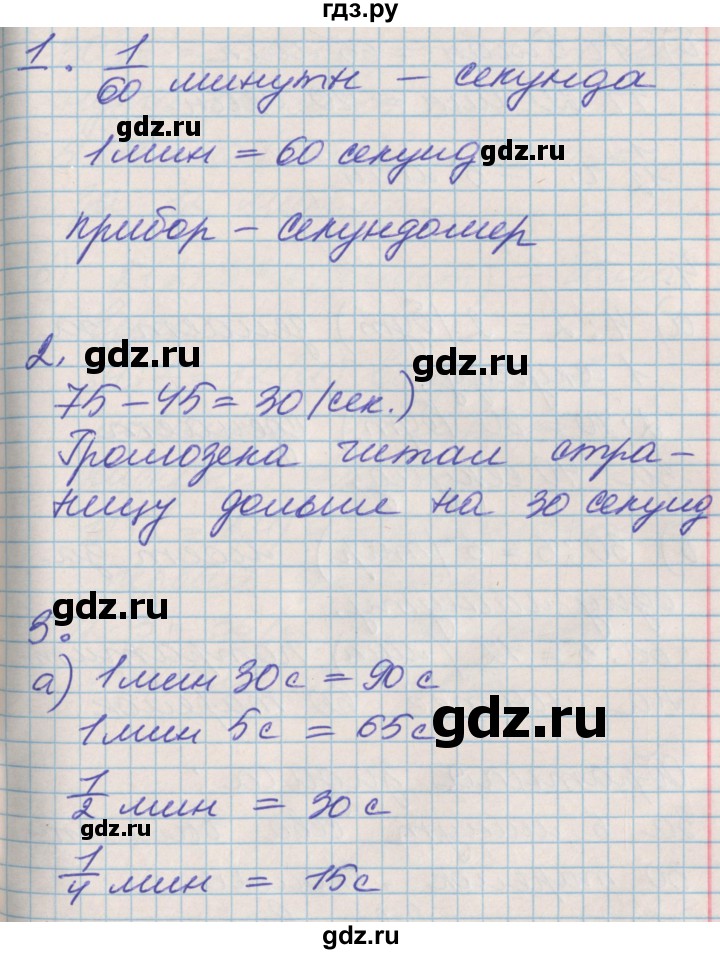 гдз.ру
1. 1/60 минуты – секунда
gdz.ru
1 мин = 60 секунд
gdz.ru
прибор – секундомер
2.
gdz.ru
gdz.ru
75 – 45 = 30 (сек.)
Громозека читал стра-
ницу дольше на 30 секунд
gdz.ru
3.
а) 1 мин 30 с = 90 с
1 мин 5 с = 65 с
gdz.ru
1/2 мин = 30 с
gdz.ru
1/4 мин = 15 с
gdz.ru